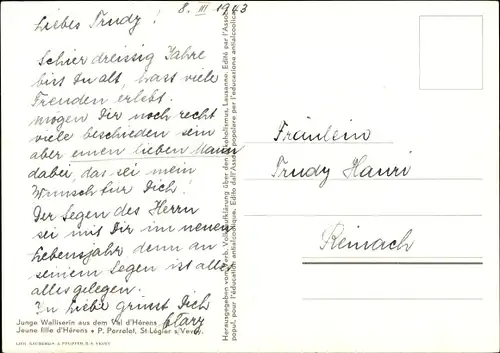 8. III 1943
Liebes Trudy!
Schier dreissig Jahre
bist Du alt, hast viele
Freuden erlebt.
mögen Dir noch recht
viele beschieden sein,
aber einen lieben Mann
dabei, das sei mein
Wunsch für Dich!
Der Segen des Herrn
sei mit Dir im neuen
Lebensjahr denn an
seinem Segen ist alles
alles gelegen.
In Liebe grüsst Dich
Junge Walliserin aus dem Val d'Hérens
Jeune fille d'Hérens • P. Perrelet, St-Légier s/Vevey.
Herausgegeben vom Verb. Volksaufklärung über den Alkoholismus, Lausanne. Edité par l'Assoc.
popul. pour l'éducation antialcoolique. Edito dall'Assoc. popolare per l'educazione antialcoolica.
Fräulein
Trudy Hauri
Reinach